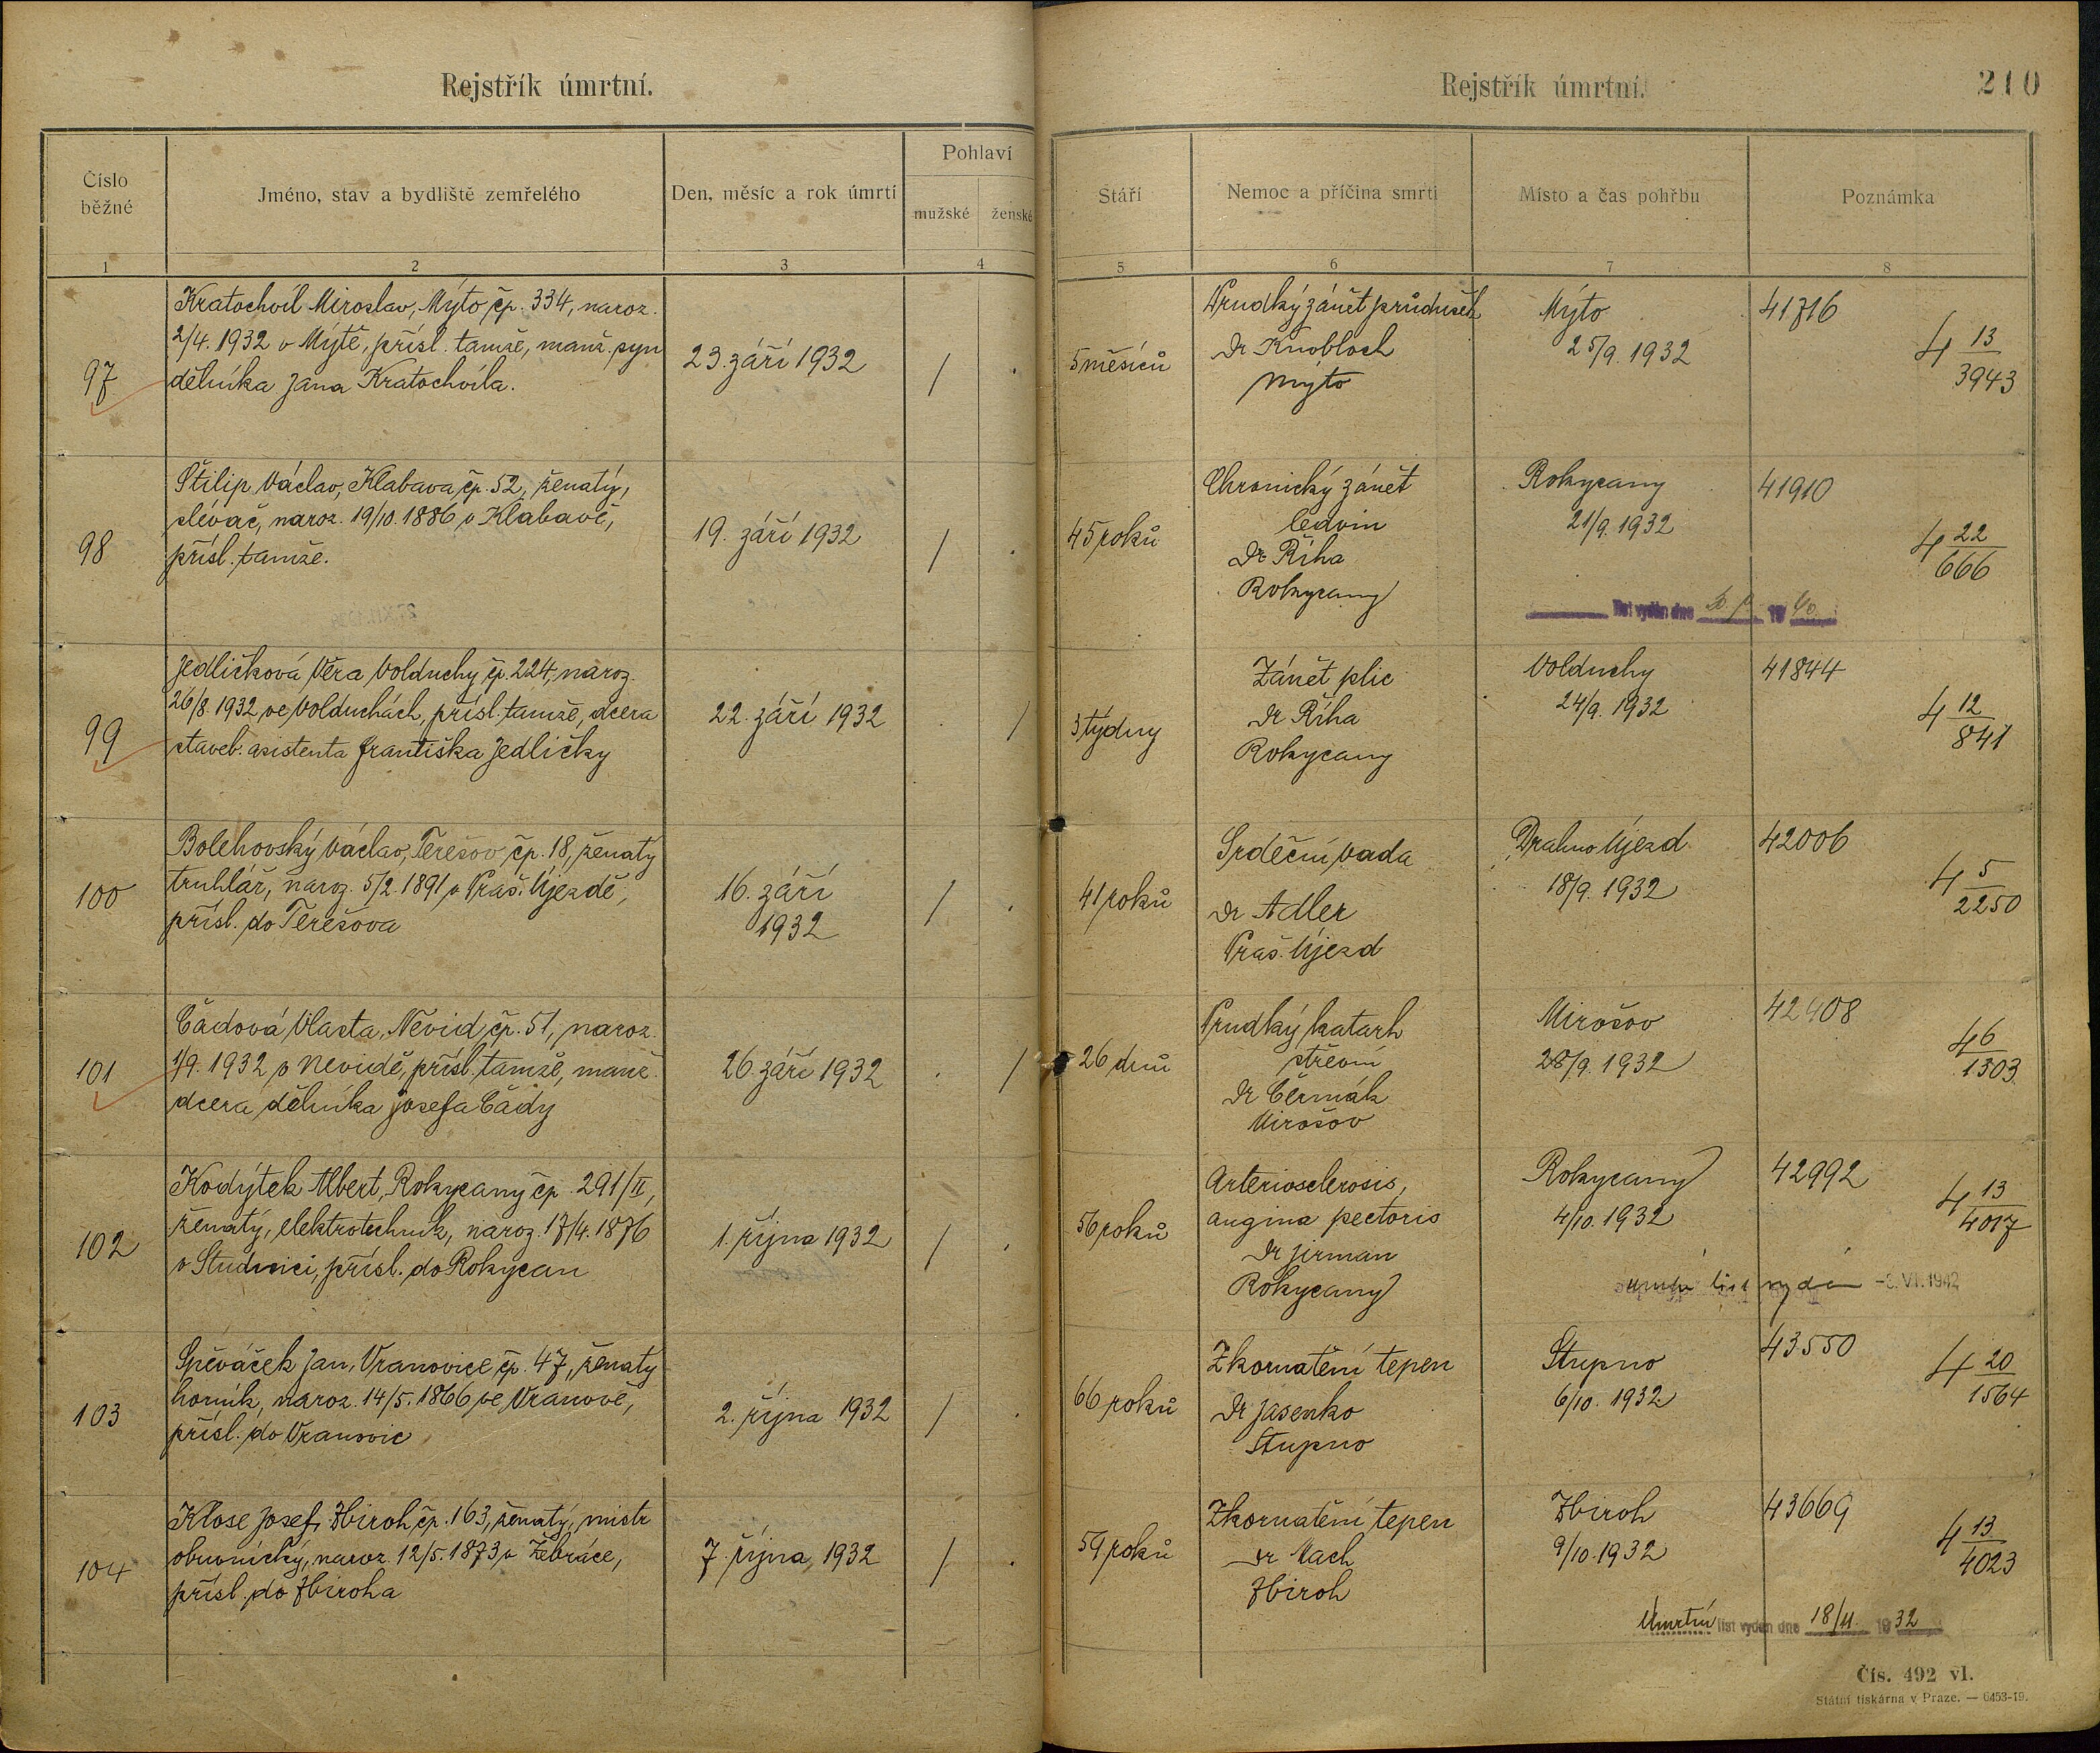 Rejstřík úmrtní.
Číslo běžné
Jméno, stav a bydliště zemřelého
Den, měsíc a rok úmrtí
Pohlaví
mužské
ženské
1
2
3
4
Rejstřík úmrtní.
210
Stáří
Nemoc a příčina smrti
Místo a čas pohřbu
Poznámka
5
6
7
8
97
Kratochvíl Miroslav, Mýto čp. 334, naroz.
2/4. 1932 v Mýtě, přísl. tamže, manž. syn
dělníka Jana Kratochvíla.
23. září 1932
/
5 měsíců
Prudký zánět průdušek
Dr Knobloch
Mýto
Mýto
25/9. 1932
41716
4 13/3943
98
Štilip Václav, Klabava čp. 52, ženatý,
slévač, naroz. 19/10. 1886 v Klabavě,
přísl. tamže.
19. září 1932
/
45 roků
Chronický zánět
ledvin
Dr Říha
Rokycany
Rokycany
21/9. 1932
41910
4 22/666
list vydán dne 19 40
99
Jedličková Věra Volduchy čp. 224, naroz.
26/8. 1932 ve Volduchách, přísl. tamže, dcera
staveb. asistenta Františka Jedličky
22. září 1932
/
3 týdny
Zánět plic
Dr Říha
Rokycany
Volduchy
24/9. 1932
41844
4 12/841
100
Bolehovský Václav, Terešov čp. 18, ženatý
truhlář, naroz. 5/2. 1891 v Praš. Újezdě,
přísl. do Terešova
16. září
1932
/
41 roků
Srdeční vada
Dr Adler
Praš. Újezd
Drahno Újezd
18/9. 1932
42006
4 5/2250
101
Čádová Vlasta, Nevid čp. 51, naroz.
1/9. 1932 v Nevidě, přísl. tamže, manž.
dcera dělníka Josefa Čády
26. září 1932
/
26 dnů
Prudký katarh
střevní
Dr Čermák
Mirošov
Mirošov
28/9. 1932
42408
4 6/1303
102
Kodýtek Albert, Rokycany čp. 291/II,
ženatý, elektrotechnik, naroz. 17/4. 1876
v Studnici, přísl. do Rokycan
1. října 1932
/
56 roků
Arteriosclerosis,
angina pectoris
Dr Jirman
Rokycany
Rokycany
4/10. 1932
42992
4 13/4017
list vydán -3. VI. 1942
103
Spěváček Jan, Vranovice čp. 47, ženatý
horník, naroz. 14/5. 1866 ve Vranově,
přísl. do Vranovic
2. října 1932
/
66 roků
Zkornatění tepen
Dr Jasenko
Stupno
Stupno
6/10. 1932
43550
4 20/1564
104
Klose Josef, Zbiroh čp. 163, ženatý, mistr
obuvnický, naroz. 12/5. 1873 v Žebráce,
přísl. do Zbiroha
7. října 1932
/
59 roků
Zkornatění tepen
Dr Mach
Zbiroh
Zbiroh
9/10. 1932
43669
4 13/4023
Úmrtní list vydán dne 18/11. 1932
Čís. 492 vl.
Státní tiskárna v Praze. — 6453-19.